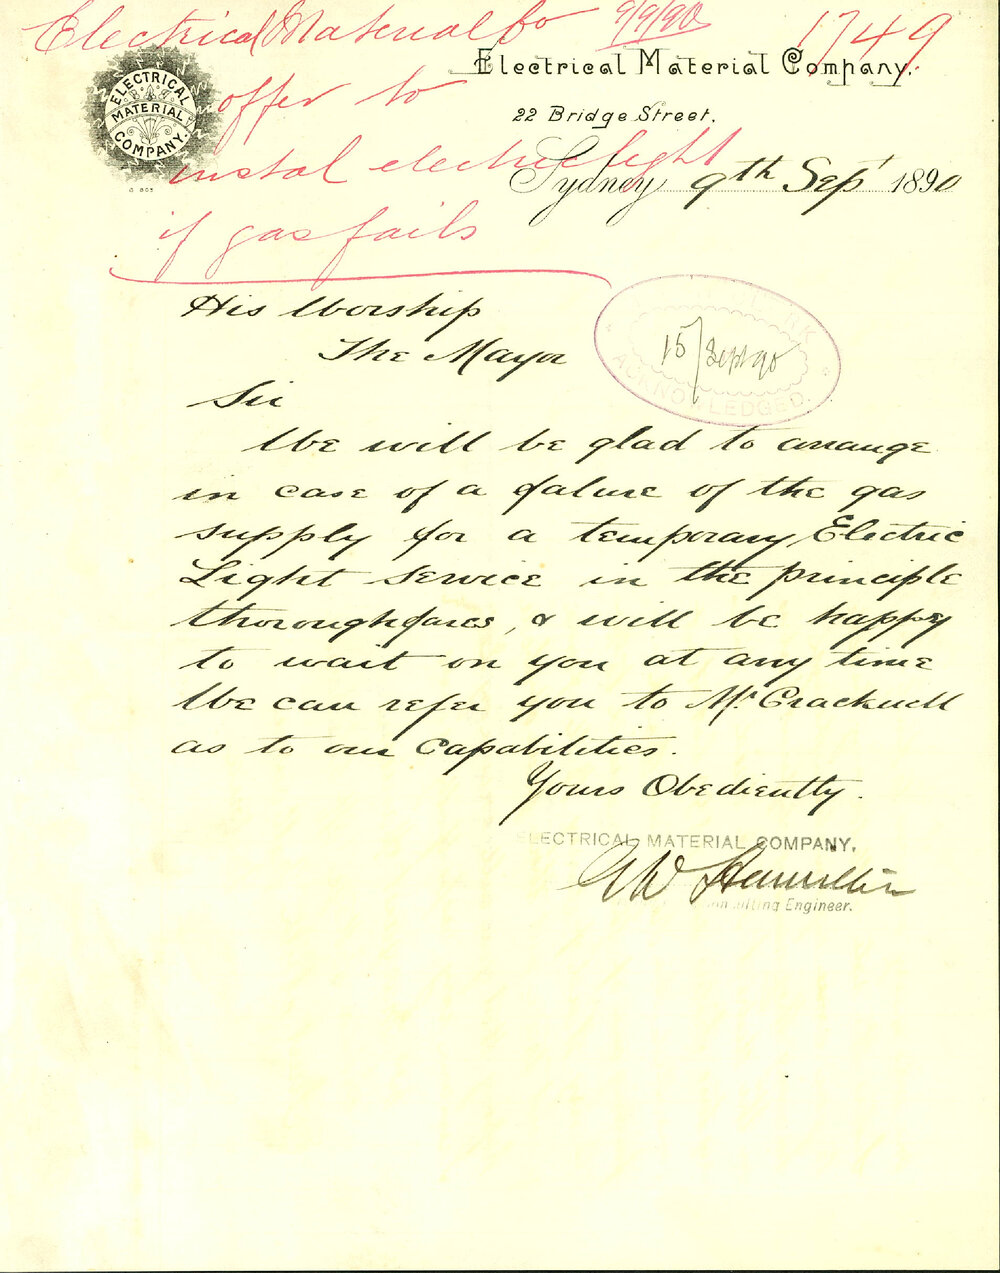 Electrical Material Co 9/9/90 1749
offer to
instal electric light
if gas fails
ELECTRICAL
MATERIAL
COMPANY.
Electrical Material Company.
22 Bridge Street.
Sydney 9th Sept 1890
His Worship
The Mayor
15/Sept 90
ACKNOWLEDGED.
Sir
We will be glad to arrange
in case of a falure of the gas
supply for a temporary Electric
Light service in the principle
thoroughfares, & will be happy
to wait on you at any time
We can refer you to Mr. Cracknell
as to our Capabilities.
Yours Obediently.
ELECTRICAL MATERIAL COMPANY.
G W Hamilton
Consulting Engineer.